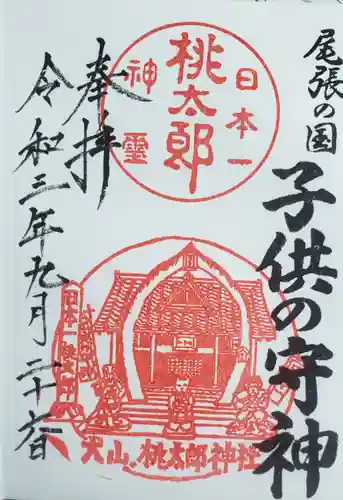 尾張の国
子供の守神
奉拝
日本一
桃太郎
神霊
令和三年九月二十六日
犬山 桃太郎神社